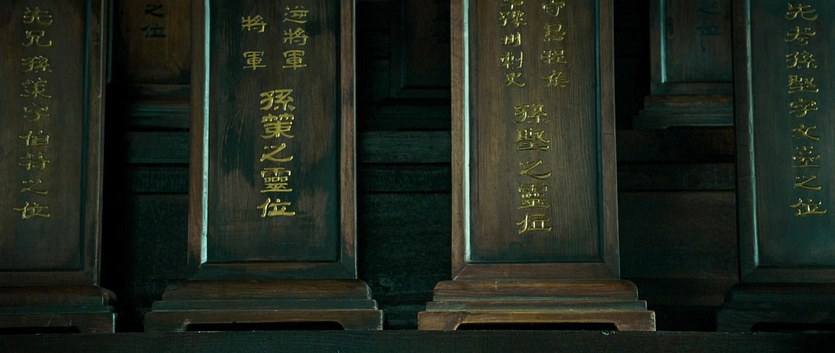 先考孫堅字文臺之位
守烏程侯
豫州刺史
孫堅之靈位
逆將軍
將軍
孫策之靈位
之位
先兄孫策字伯符之位